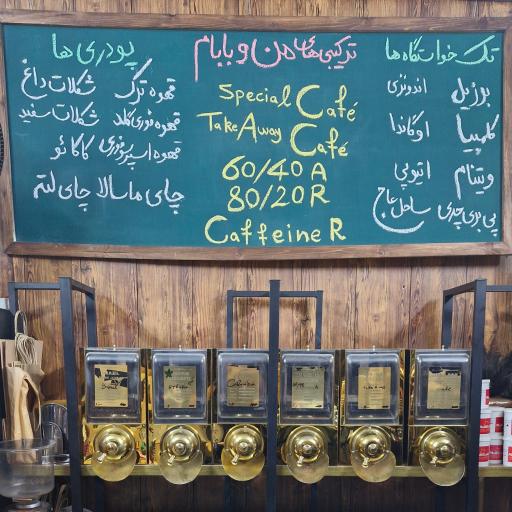 تک خواستگاه ها
برزیل اندونزی
کلمبیا اوگاندا
ویتنام اتیوپی
پی بری چری ساحل عاج
ترکیبی های من و بابام
Special Café
Take Away Café
60/40 A
80/20 R
Caffeine R
پودری ها
قهوه ترک شکلات داغ
قهوه فوری گلد شکلات سفید
قهوه اسپرسو فوری کاکائو
چای ماسالا چای لته